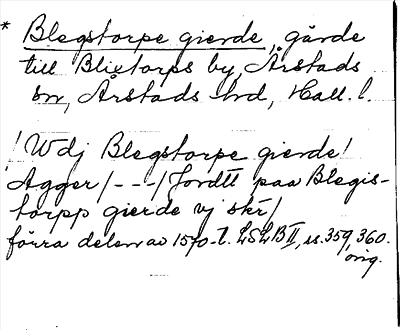 * Blegstorpe gierde, gärde
till Blixtorps by, Årstads
sn, Årstads hd, Hall. l.
! Wdj Blegstorpe gierde!
Agger /---/ Jordtt paa Blegis-
torpp gierde vj skr/
förra delen av 1570-t. LSLB II, ss. 359, 360.
orig.